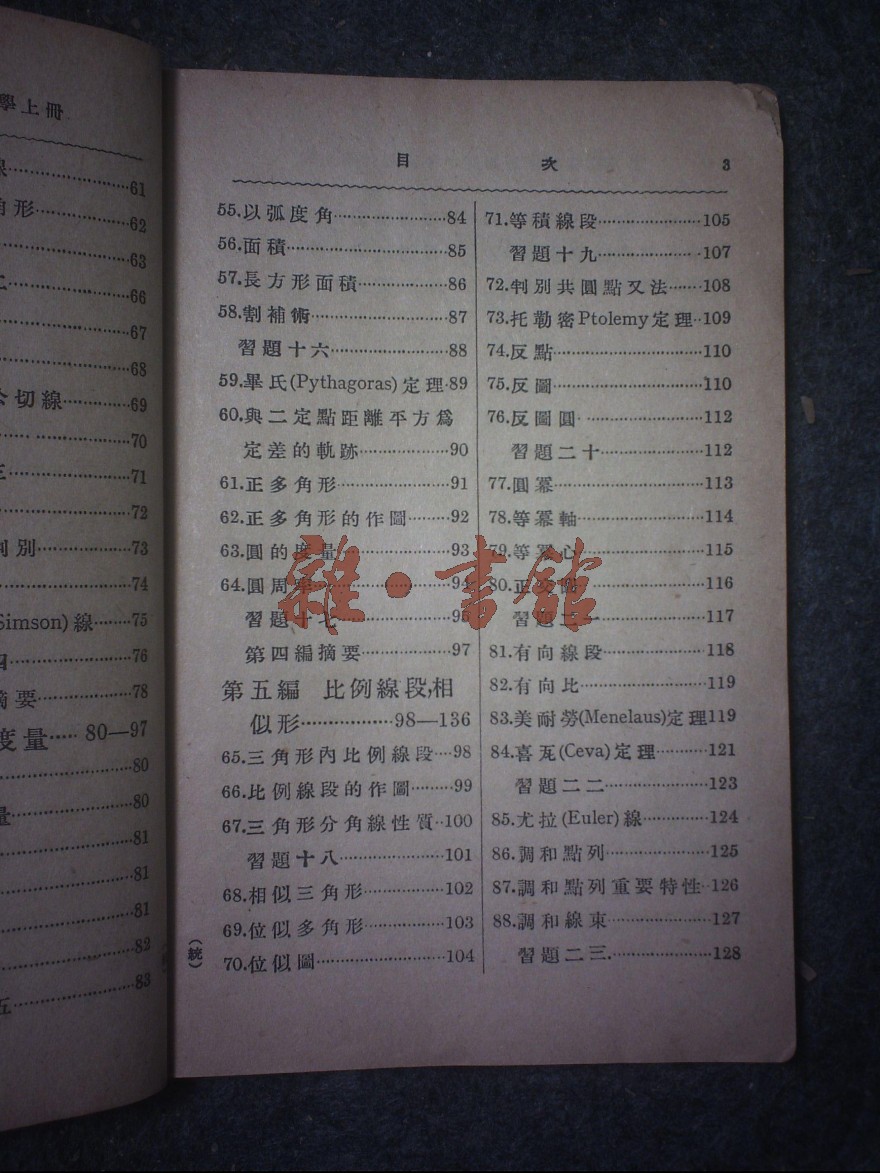 學上冊
61
角形……62
63
66
67
68
切線……69
70
71
72
判別……73
74
Simson)線……75
76
摘要……78
度量……80—97
80
80
81
81
81
82
83
目次 3
55.以弧度角……84
56.面積……85
57.長方形面積……86
58.割補術……87
習題十六……88
59.畢氏(Pythagoras)定理·89
60.與二定點距離平方爲
定差的軌跡……90
61.正多角形……91
62.正多角形的作圖……92
63.圓的度量……93
64.圓周率……94
習題十七……95
第四編摘要……97
第五編 比例線段,相
似形……98—136
65.三角形內比例線段…98
66.比例線段的作圖……99
67.三角形分角線性質··100
習題十八……101
68.相似三角形……102
69.位似多角形……103
70.位似圖……104
(統)
71.等積線段……105
習題十九……107
72.判別共圓點又法……108
73.托勒密Ptolemy定理··109
74.反點……110
75.反圖……110
76.反圖圓……112
習題二十……112
77.圓冪……113
78.等冪軸……114
79.等冪心……115
80.正交圓……116
習題二一……117
81.有向線段……118
82.有向比……119
83.美耐勞(Menelaus)定理119
84.喜瓦(Ceva)定理……121
習題二二……123
85.尤拉(Euler)線……124
86.調和點列……125
87.調和點列重要特性··126
88.調和線束……127
習題二三……128
雜·書館